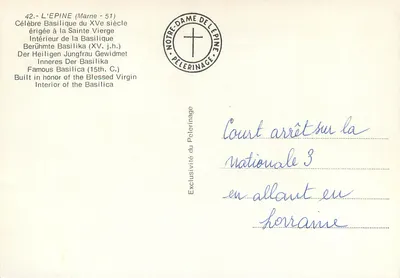 42.- L'EPINE (Marne - 51)
Célèbre Basilique du XVe siècle
érigée à la Sainte Vierge
Intérieur de la Basilique
Berühmte Basilika (XV. j.h.)
Der Heiligen Jungfrau Gewidmet
Inneres Der Basilika
Famous Basilica (15th. C.)
Built in honor of the Blessed Virgin
Interior of the Basilica
NOTRE-DAME DE L'EPINE
• PÈLERINAGE •
Exclusivité du Pelerinage
Court arrêt sur la
nationale 3
en allant en
Lorraine